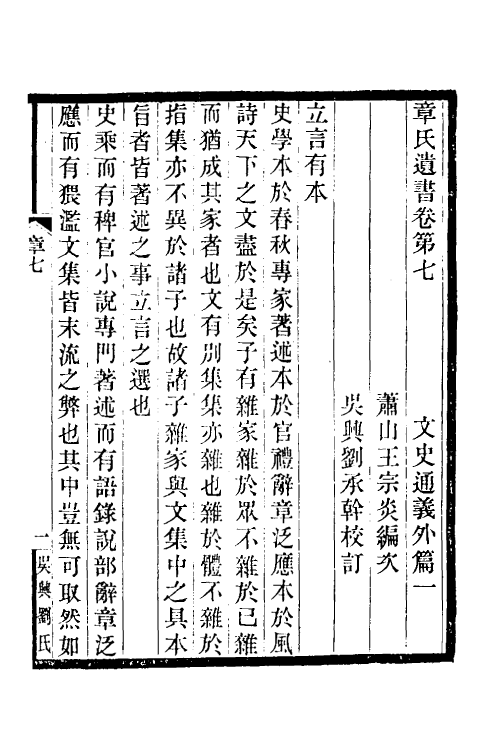 章氏遺書卷第七　文史通義外篇一
蕭山王宗炎編次
吳興劉承幹校訂
立言有本
史學本於春秋專家著述本於官禮辭章泛應本於風
詩天下之文盡於是矣子有雜家雜於眾不雜於己雜
而猶成其家者也文有別集集亦雜也雜於體不雜於
指集亦不異於諸子也故諸子雜家與文集中之具本
旨者皆著述之事立言之選也
史乘而有稗官小說專門著述而有語錄說部辭章泛
應而有猥濫文集皆末流之弊也其中豈無可取然如
章七
一
吳興劉氏